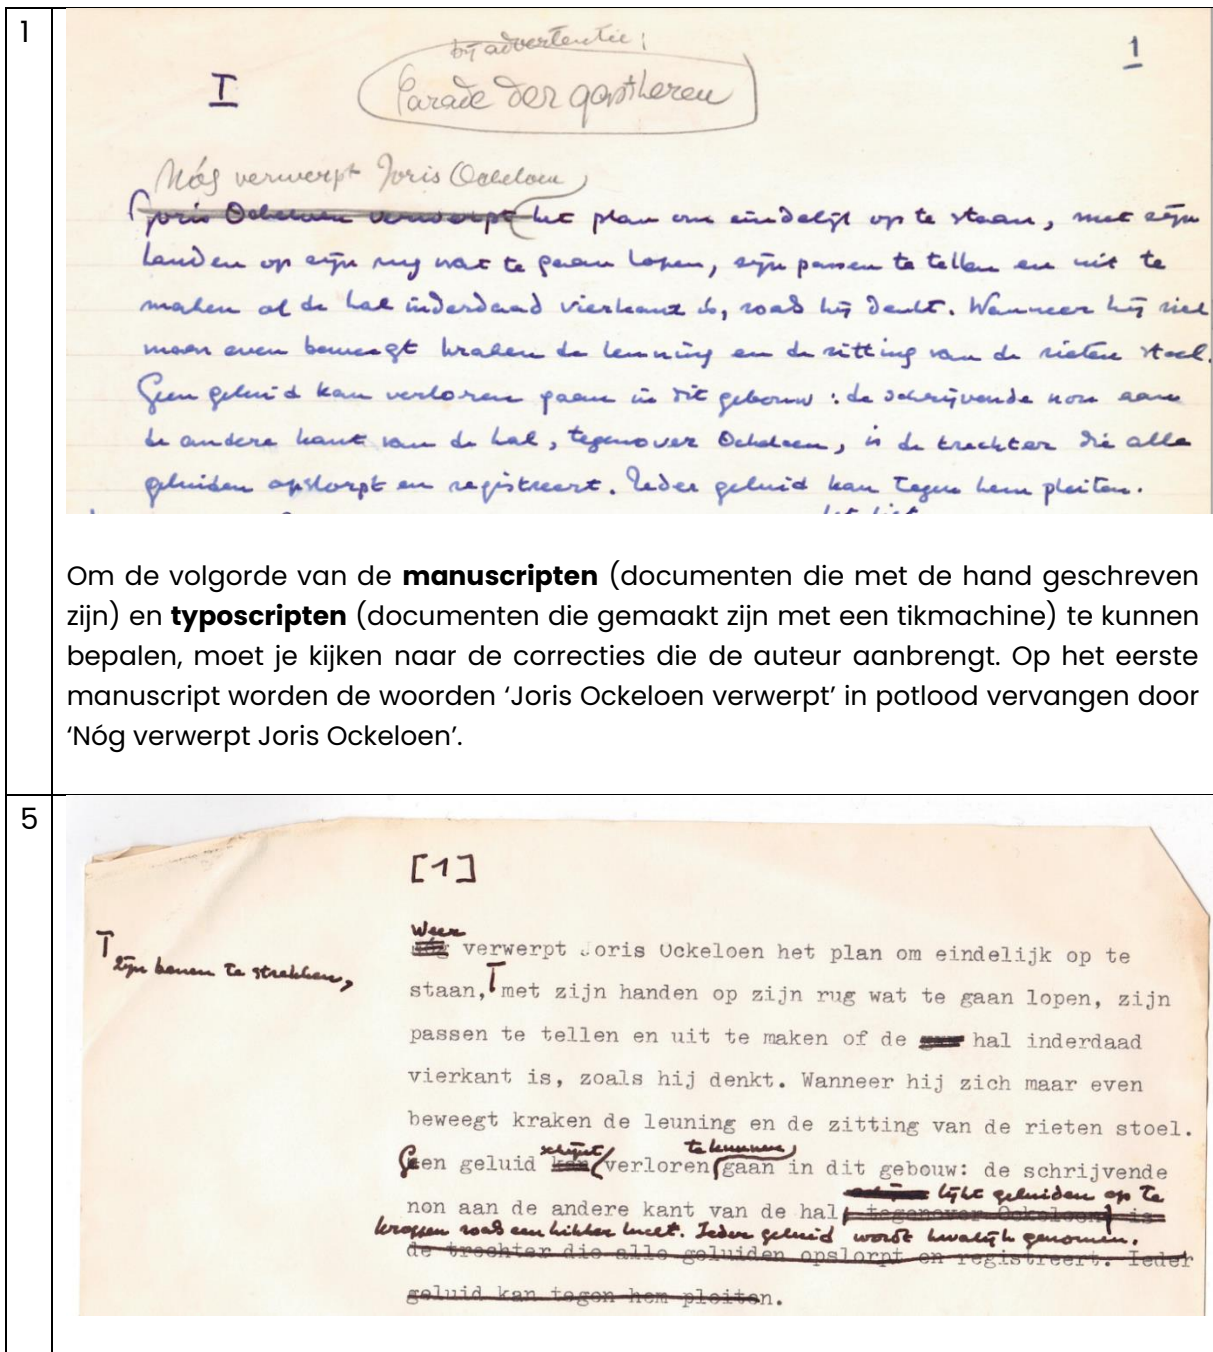 1
bij advertentie:
1
I
Parade der gastheren
Nóg verwerpt Joris Ockeloen
Joris Ockeloen verwerpt het plan om eindelijk op te staan, met zijn
handen op zijn rug wat te gaan lopen, zijn passen te tellen en uit te
maken of de hal inderdaad vierkant is, zoals hij denkt. Wanneer hij zich
maar even beweegt kraken de leuning en de zitting van de rieten stoel.
Geen geluid kan verloren gaan in dit gebouw: de schrijvende non aan
de andere kant van de hal, tegenover Ockeloen, is de trechter die alle
geluiden opslorpt en registreert. Ieder geluid kan tegen hem pleiten.
Om de volgorde van de manuscripten (documenten die met de hand geschreven
zijn) en typoscripten (documenten die gemaakt zijn met een tikmachine) te kunnen
bepalen, moet je kijken naar de correcties die de auteur aanbrengt. Op het eerste
manuscript worden de woorden ‘Joris Ockeloen verwerpt’ in potlood vervangen door
‘Nóg verwerpt Joris Ockeloen’.
5
[1]
Weer
nóg verwerpt Joris Ockeloen het plan om eindelijk op te
zijn benen te strekken,
staan, met zijn handen op zijn rug wat te gaan lopen, zijn
passen te tellen en uit te maken of de hal inderdaad
vierkant is, zoals hij denkt. Wanneer hij zich maar even
beweegt kraken de leuning en de zitting van de rieten stoel.
schijnt te kunnen
Geen geluid kan verloren gaan in dit gebouw: de schrijvende
lijkt geluiden op te
non aan de andere kant van de hal, tegenover Ockeloen, is
kroppen zoals een kikker lucht. Ieder geluid wordt kwalijk genomen.
de trechter die alle geluiden opslorpt en registreert. Ieder
geluid kan tegen hem pleiten.